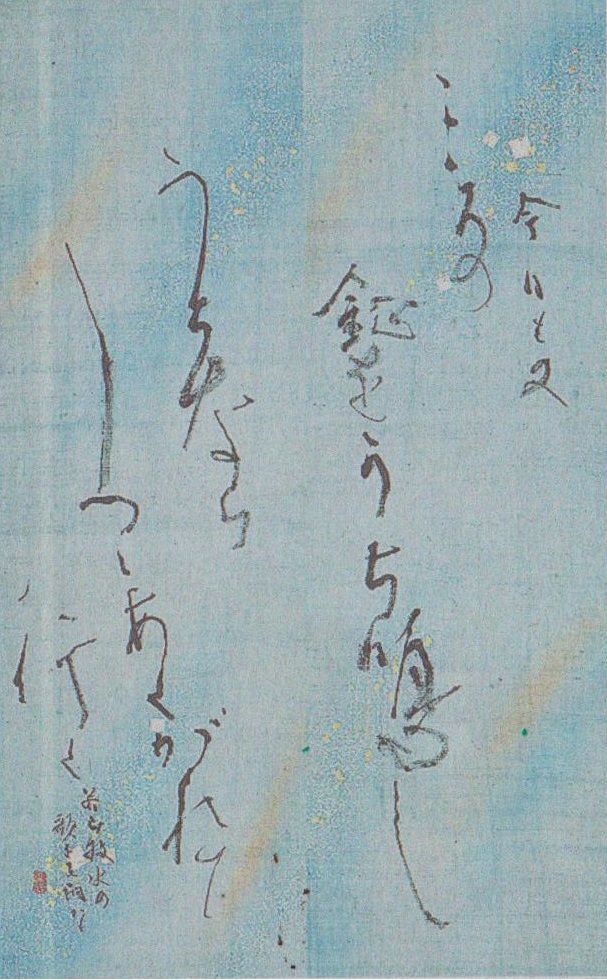 今日も又
こゝろの
鉦をうち鳴し
うちなら
しつゝ
あくがれて
行く
若山牧水の
歌